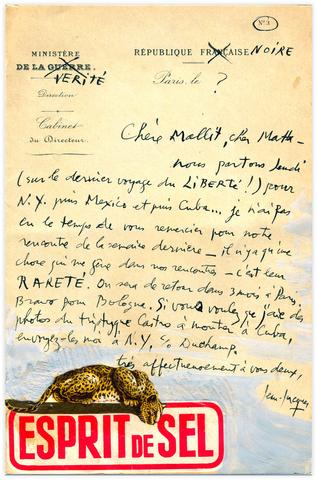 N° 3
MINISTÈRE
DE LA GUERRE.
VERITÉ
Direction
Cabinet
du Directeur.
RÉPUBLIQUE FRANÇAISE NOIRE
Paris, le ?
Chère Mallit, cher Matta –
nous partons lundi
(sur le dernier voyage du LIBERTÉ!) pour
N.Y. puis Mexico et puis Cuba... je n'ai pas
eu le temps de vous remercier pour notre
rencontre de la semaine dernière – il n'y a qu'une
chose qui me gêne dans nos rencontres – c'est leur
RARETÉ. On sera de retour dans 3 mois à Paris.
Bravo pour Bologne. Si vous voulez que j'aie des
photos du triptyque Castro à montrer à Cuba,
envoyez-les moi à N.Y. c/o Duchamp.
très affectueusement à vous deux,
Jean-Jacques
ESPRIT DE SEL